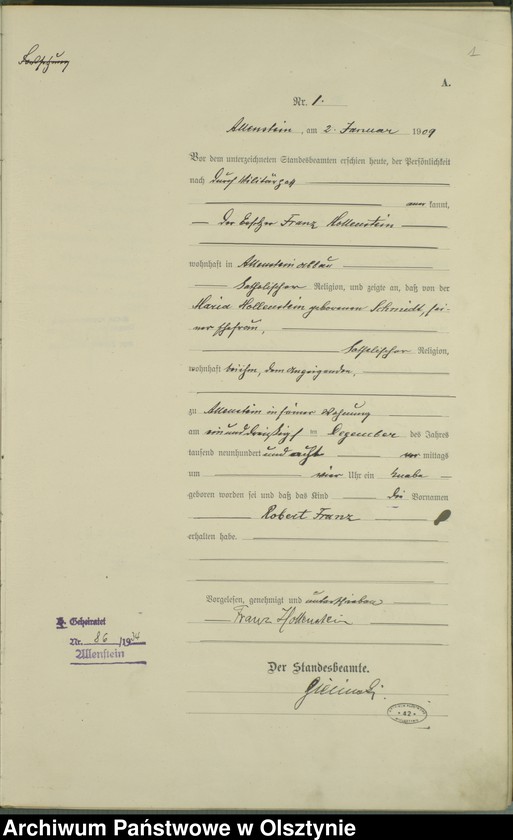 1
A.
Nr. 1.
Allenstein, am 2. Januar 1909
Vor dem unterzeichneten Standesbeamten erschien heute, der Persönlichkeit
nach durch Militärpaß
kannt,
der Besitzer Franz Hollenstein
wohnhaft in Allenstein abbau
katholischer Religion, und zeigte an, daß von der
Maria Hollenstein geborenen Schmidt, sei-
ner Ehefrau,
katholischer Religion,
wohnhaft bei ihm, dem Anzeigenden,
zu Allenstein in seiner Wohnung
am ein und dreißigsten Dezember des Jahres
tausend neunhundert und acht vor mittags
um vier Uhr ein Knabe
geboren worden sei und daß das Kind die Vornamen
Robert Franz
erhalten habe.
Vorgelesen, genehmigt und unterschrieben
Franz Hollenstein
Geheiratet
Nr. 86/1934
Allenstein
Der Standesbeamte.
42
Archiwum Państwowe w Olsztynie